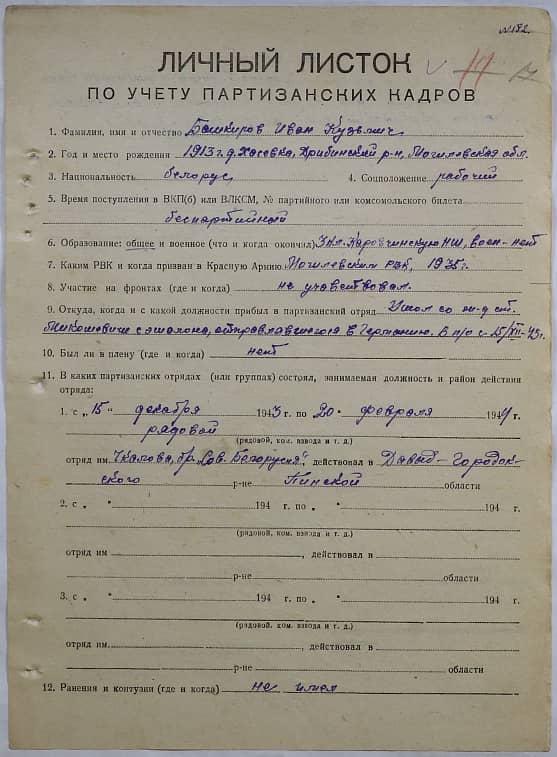 №182.
ЛИЧНЫЙ ЛИСТОК
ПО УЧЕТУ ПАРТИЗАНСКИХ КАДРОВ
1. Фамилия, имя и отчество Башкиров Иван Кузьмич
2. Год и место рождения 1913 г. д. Хасовка, Дрибинский р-н, Могилевская обл.
3. Национальность белорус, 4. Соцположение рабочий
5. Время поступления в ВКП(б) или ВЛКСМ, № партийного или комсомольского билета
беспартийный
6. Образование: общее и военное (что и когда окончил) 3 кл. НШ, воен- нет
7. Каким РВК и когда призван в Красную Армию Могилевским РВК, 1935 г.
8. Участие на фронтах (где и когда) не участвовал.
9. Откуда, когда и с какой должности прибыл в партизанский отряд Ушел со ж-д ст.
Микошевичи с эшелона, отправлявшегося в Германию. В п/о с 15/XII-43 г.
10. Был ли в плену (где и когда) нет
11. В каких партизанских отрядах (или группах) состоял, занимаемая должность и район действия
отряда:
1. с „15" декабря 1943 г. по „20" февраля 1944 г.
рядовой
(рядовой, ком. взвода и т. д.)
отряд им. Чкалова, бр. „Сов. Белоруссия", действовал в Давыд-Городок-
ского р-не Пинской области
2. с „ " 194 г. по „ " 194 г.
(рядовой, ком. взвода и т. д.)
отряд им. , действовал в
р-не области
3. с „ " 194 г. по „ " 194 г.
(рядовой, ком. взвода и т. д.)
отряд им. , действовал в
р-не области
12. Ранения и контузии (где и когда) не имел